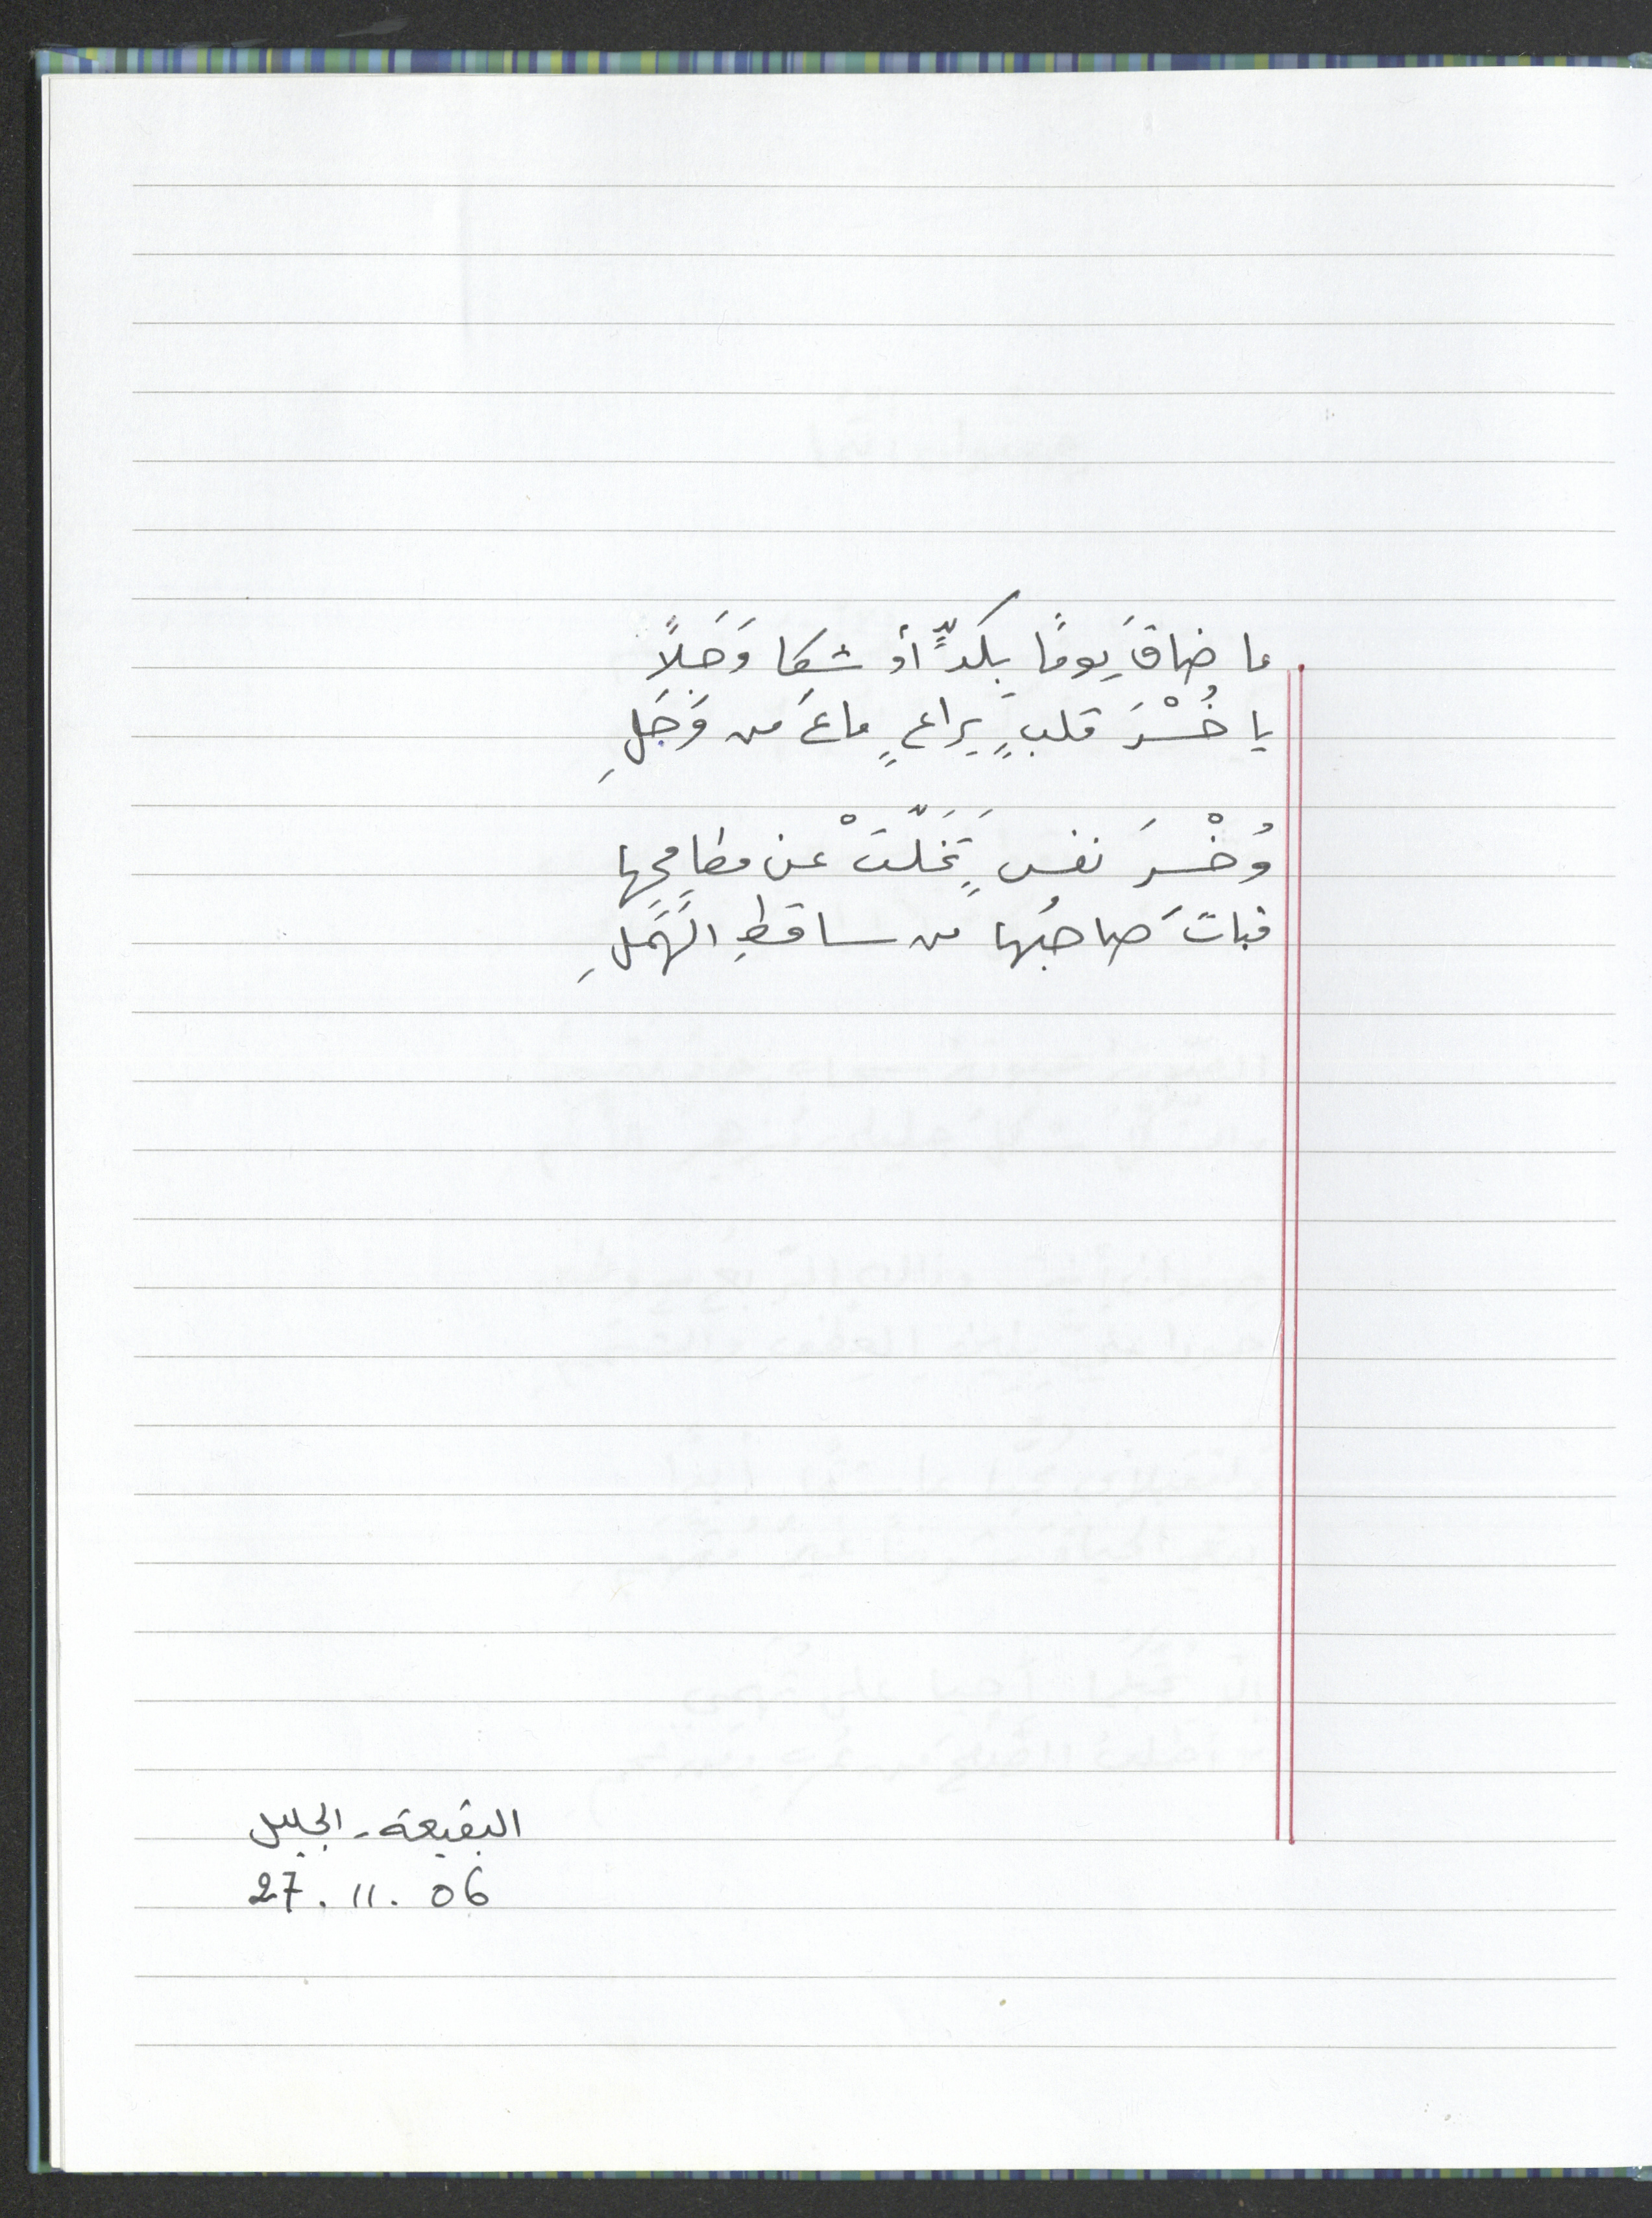 ما ضاقَ يومًا بِكَدٍّ أو شكا وَجَلًا
يا خُسْرَ قلبٍ يراعٍ ماعَ من وَجَلِ
وُخْسرَ نفسٍ تَخَلَّتْ عن مطامِحِها
فباتَ صاحبُها من ساقطِ الهَمَلِ
البقيعة - الجليل
27. 11. 06